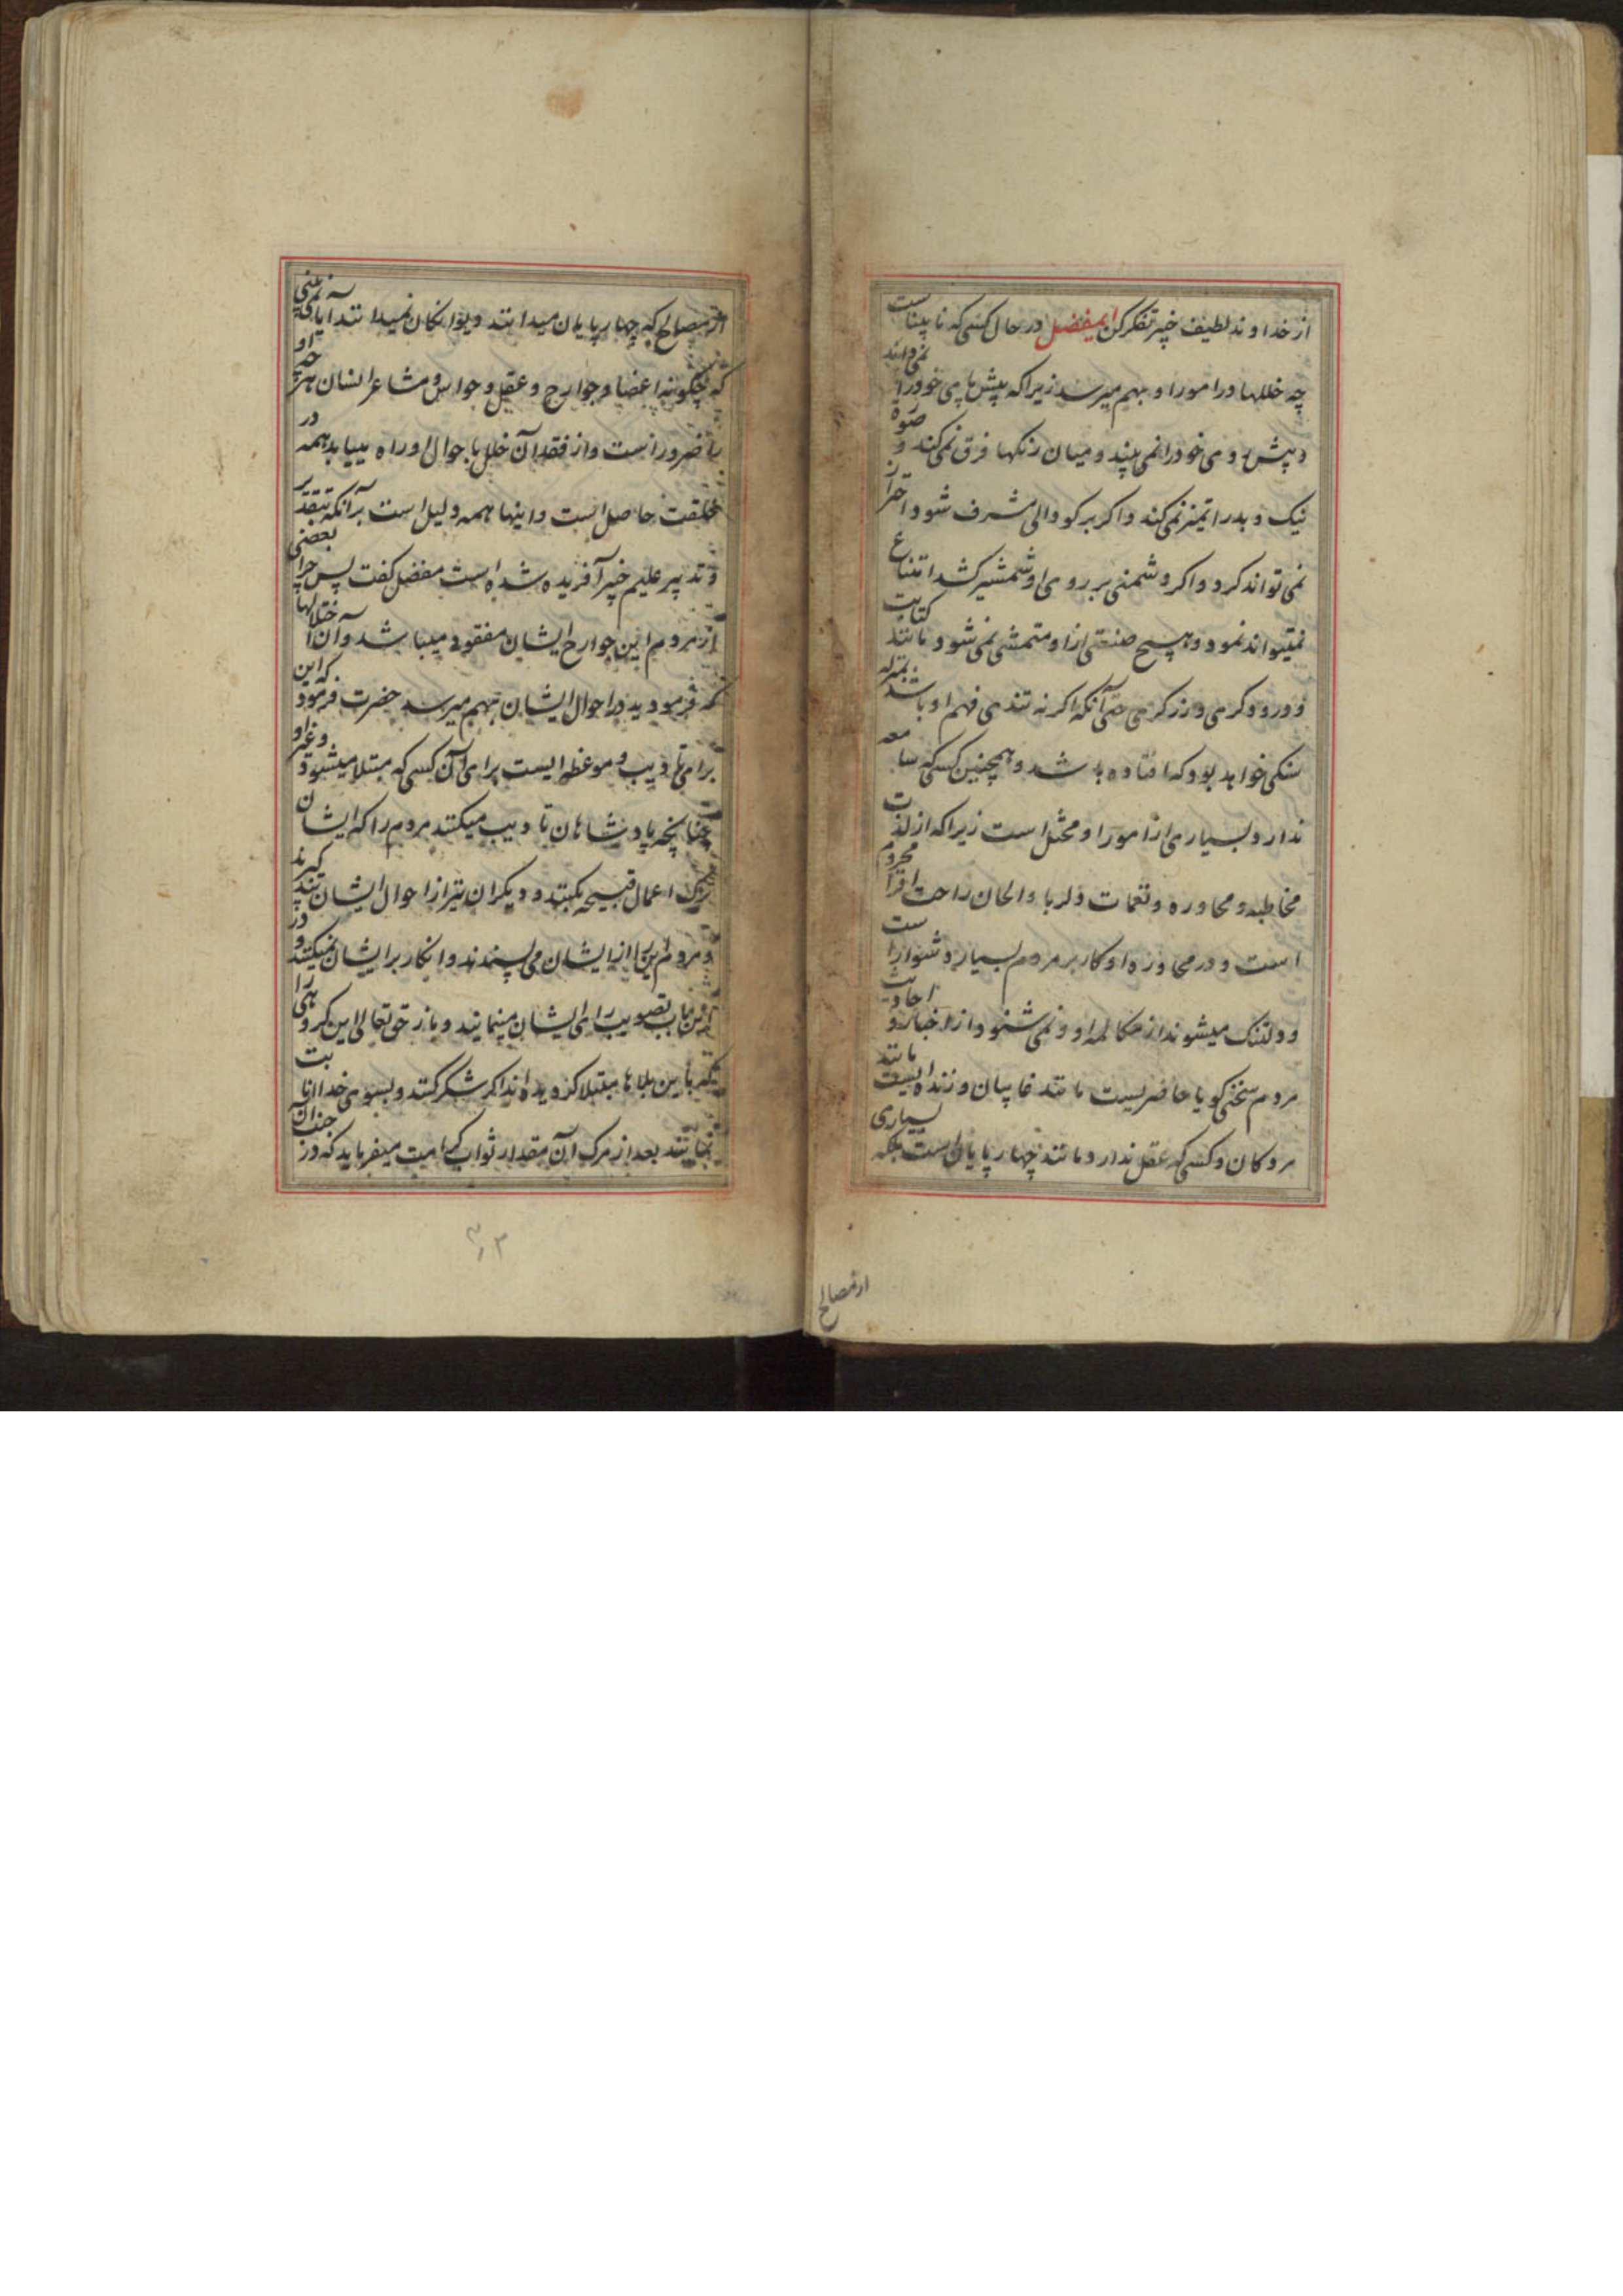 از خداوند لطیف خبیر تفکر کن ایمفضل در حال کسی که نابیناست
چه خللها در امور او بهم میرسد زیرا که پیش پای خود را نمی‌داند
و پیش روی خود را نمی بیند و میان رنکها فرق نمی کند و صورة
نیک و بد را تمیز نمی کند و اکر بر کودالی مشرف شود احتراز
نمی تواند کرد و اکر دشمنی بر روی او شمشیر کشد امتناع
نمیتواند نمود و هیچ صنعتی از او متمشی نمی شود مانند کتابت
و درودکری و زرکری حتی آنکه اکر نه تندی فهم او باشد بمنزله
سنکی خواهد بود که افتاده باشد و همچنین کسی که سامعه
ندارد بسیاری از امور او مختل است زیرا که از لذت
مخاطبه و محاوره و نغمات دلربا و الحان راحت افزا محروم
است و در محاوره او کار بر مردم بسیار دشوار است
و دلتنک میشوند از مکالمه او و نمی شنود از اخبار و احادیث
مردم سخنی کویا حاضریست مانند غایبان و زنده ایست مانند
مردکان و کسی که عقل ندارد مانند چهارپایان است بلکه بسیاری
از مصالح
از مصالح که چهارپایان میدانند دیوانکان نمیدانند آیا نمی‌بینی
که چکونه اعضا و جوارح و عقل و حواس و مشاعر انسان هر چه او
را ضرور است و از فقد آن خلل باحوال او راه مییابد همه در
خلقت حاصل است و اینها همه دلیل است بر آنکه بتقدیر
و تدبیر علیم خبیر آفریده شده است مفضل کفت پس چرا بعضی
از مردم این جوارح ایشان مفقود میباشد و آن اختلالها
که فرمودید در احوال ایشان بهم میرسد حضرت فرمود که این
برای تادیب و موعظه ایست برای آن کسی که مبتلا میشود و غیر او
چنانچه پادشاهان تادیب میکنند مردم را که ایشان
ترک اعمال قبیحه بکنند و دیکران نیز از احوال ایشان پند کیرند
و مردم این را از ایشان می پسندند و انکار بر ایشان نمیکنند و در
این باب تصویب رای ایشان مینمایند و باز حق تعالی این کروهی را
که باین بلاها مبتلا کردیده اند اکر شکر کنند و بسوی خدا انابت
نمایند بعد از مرک آن مقدار ثواب کرامت میفرماید که در جنب آن